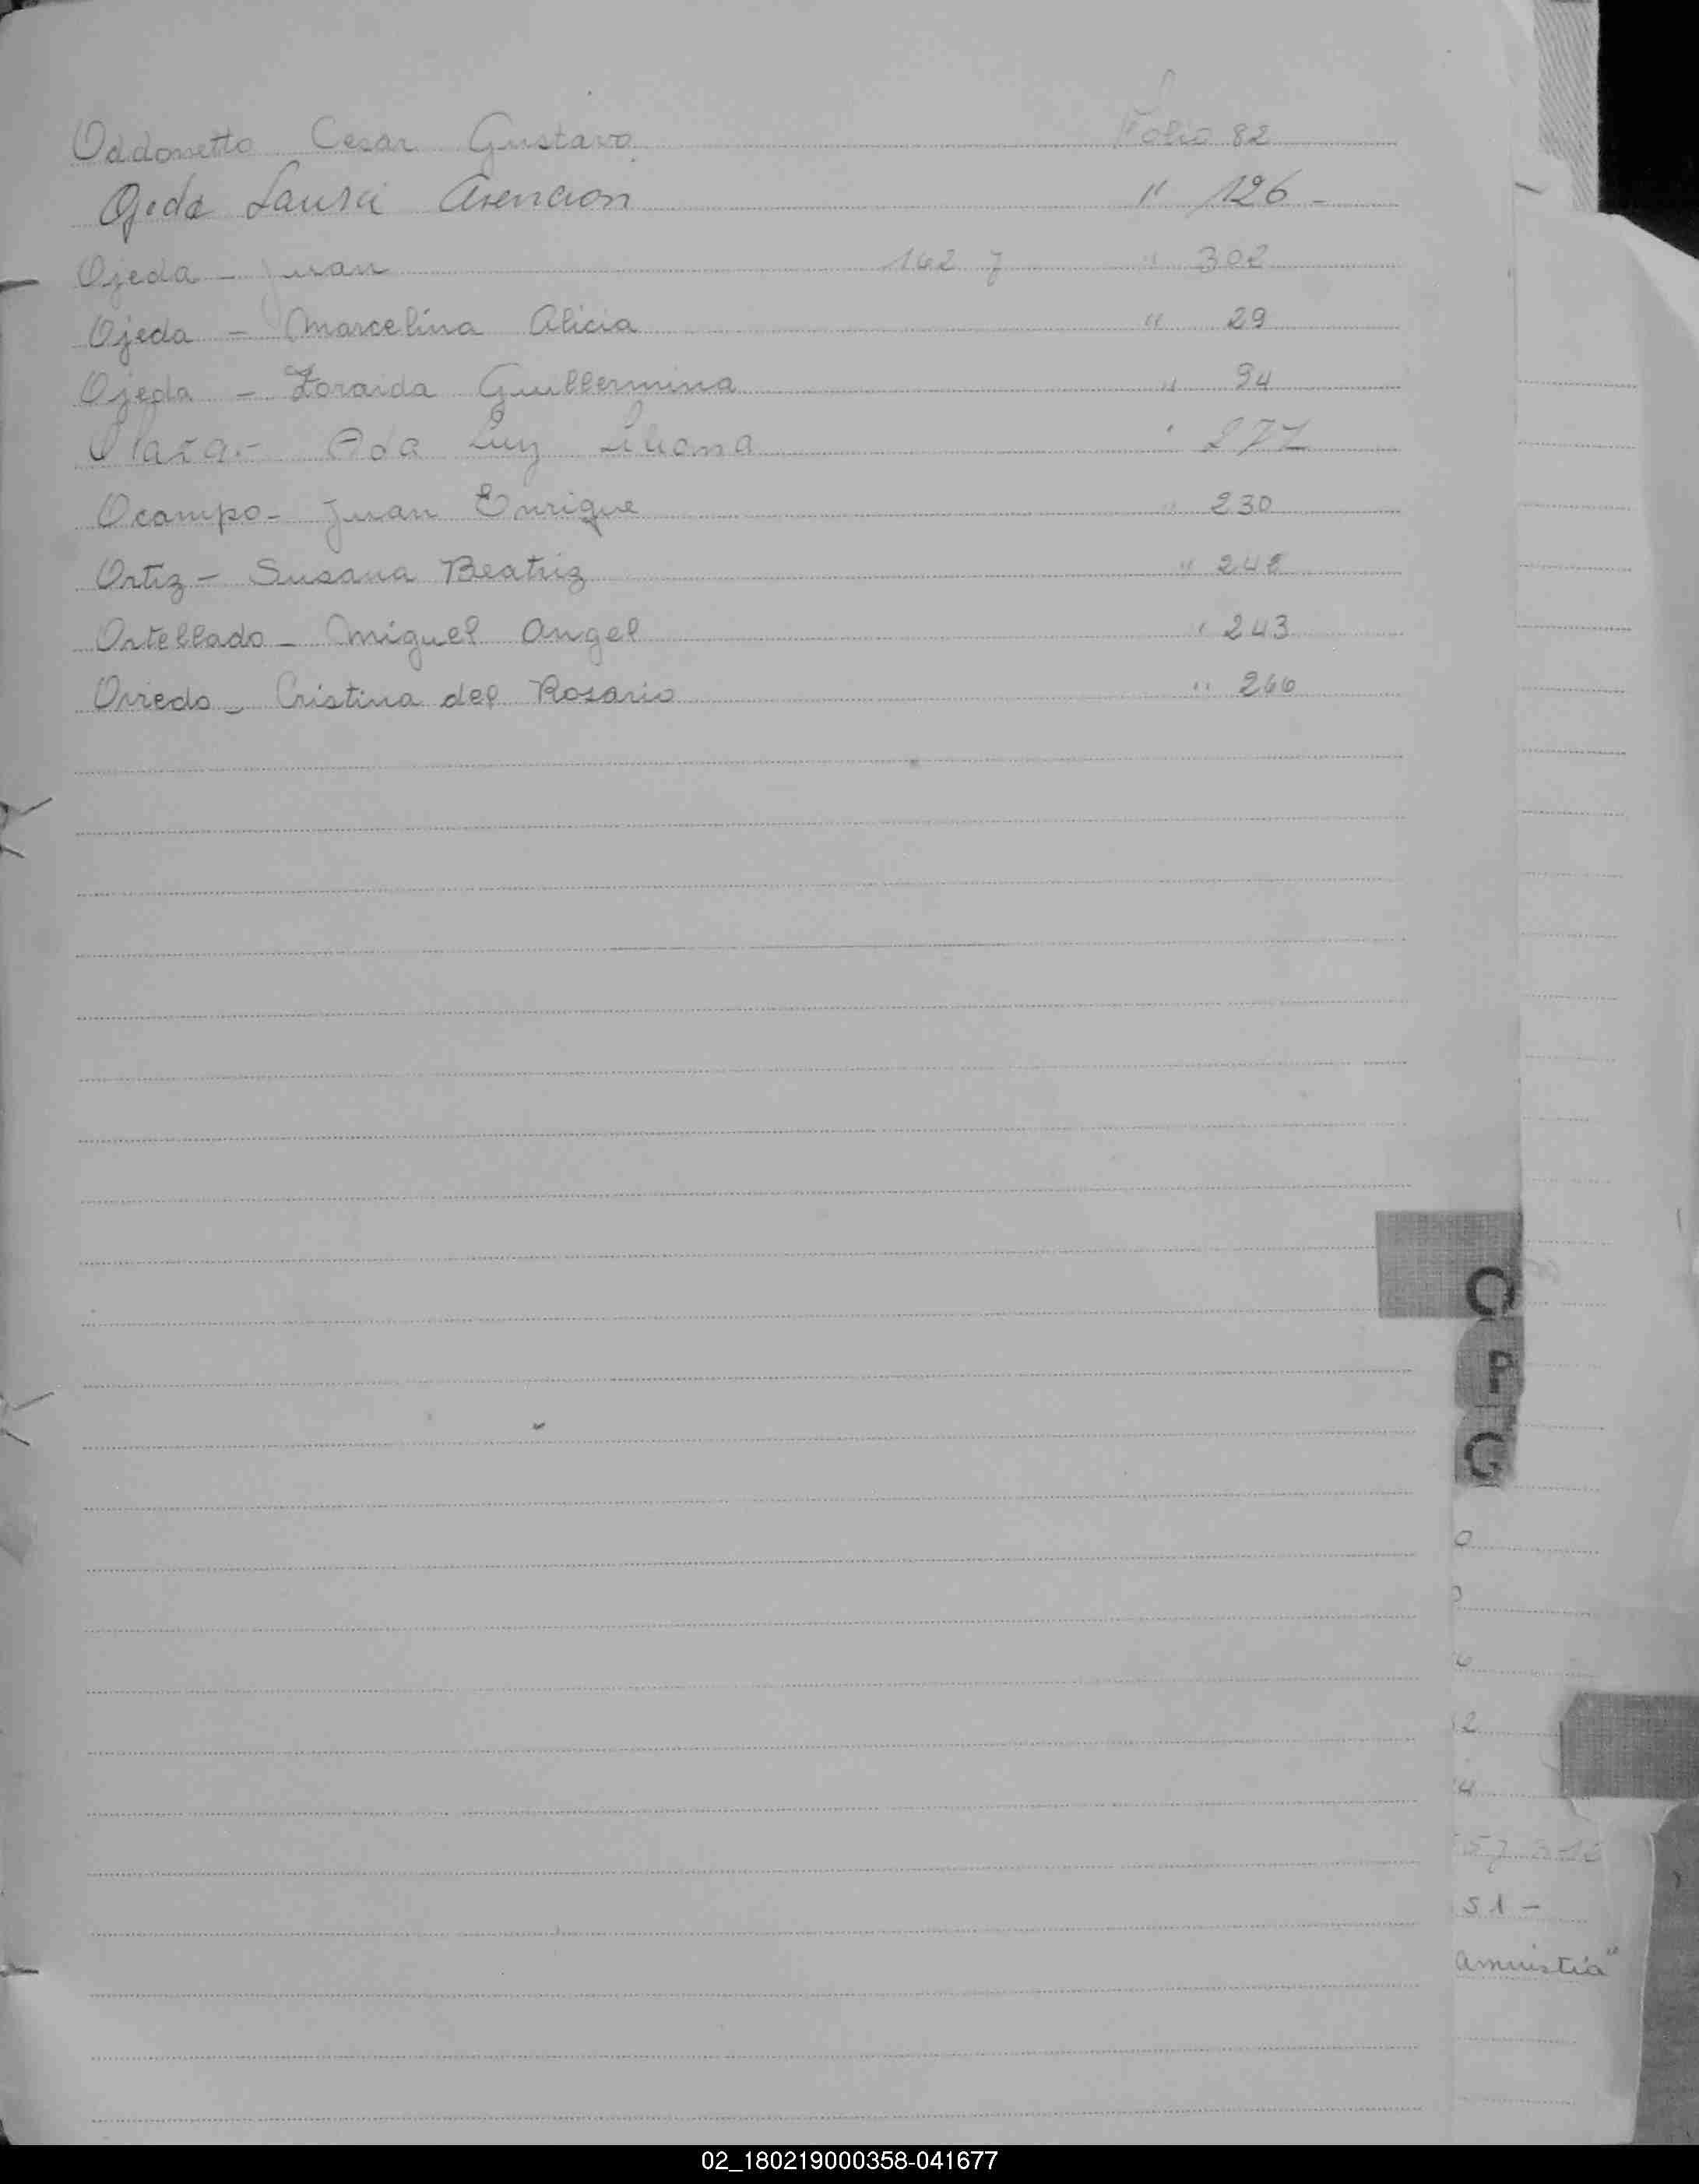 Oddonetto Cesar Gustavo Folio 82
Ojeda Laura Asencion " 126 -
Ojeda - Juan 162 y " 302
Ojeda - Marcelina Alicia " 29
Ojeda - Zoraida Guillermina " 94
Olaza - Ada Luz Liliana " 277
Ocampo - Juan Enrique " 230
Ortiz - Susana Beatriz " 245
Ortellado - Miguel Angel " 243
Oviedo - Cristina del Rosario " 266
O
P
Q
0
2
4
57
51 -
amnistia"
02_180219000358-041677